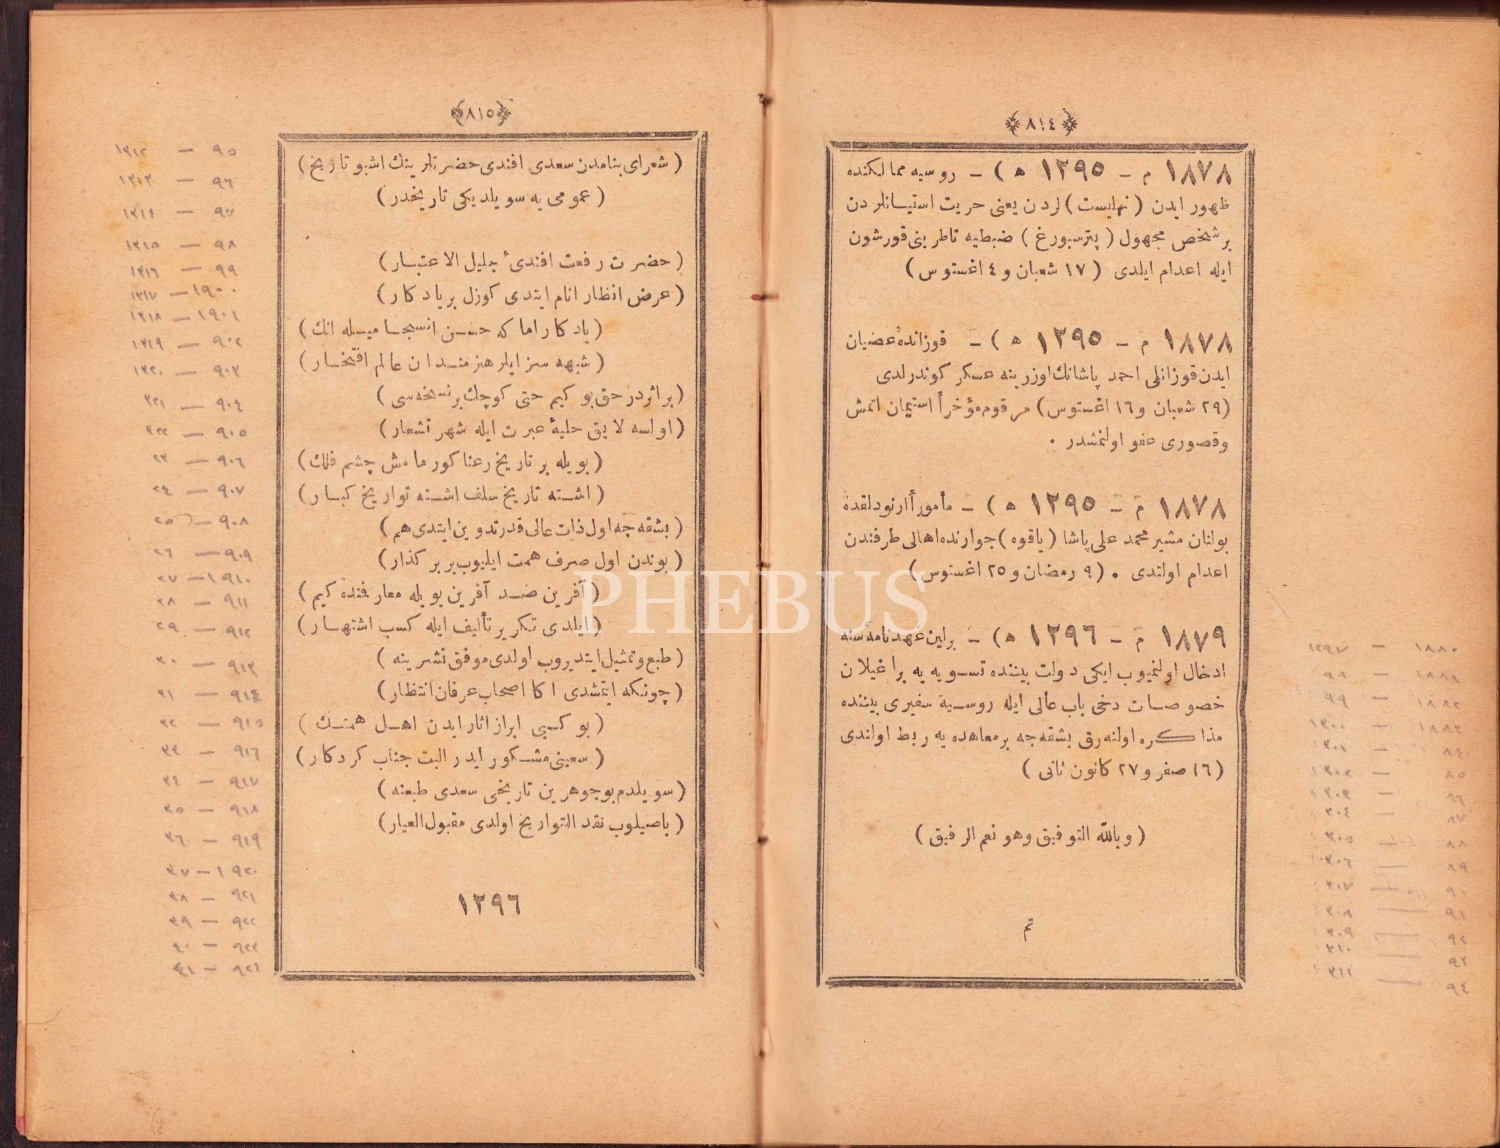 ﴿٨١٤﴾
١٨٧٨ م – ١٢٩٥ ه‍ ) – روسیه ممالکنده
ظهور ایدن (نهلیست) لردن یعنی حریت استیانلردن
برشخص مجهول (پترسبورغ) ضبطیه ناظرینی قورشون
ایله اعدام ایلدی (١٧ شعبان و ٤ اغستوس)
١٨٧٨ م – ١٢٩٥ ه‍ ) – قوزانده عصیان
ایدن قوزانلی احمد پاشانك اوزرینه عسکر کوندرلدی
(٢٩ شعبان و ١٦ اغستوس) مرقوم مؤخراً استیمان اتمش
وقصوری عفو اولنمشدر ٠
١٨٧٨ م – ١٢٩٥ ه‍ ) – مأموراً ارنودلقده
بولنان مشیر محمد علی پاشا (یاقوه) جوارنده اهالی طرفندن
اعدام اولندی ٠ (٩ رمضان و ٢٥ اغستوس)
١٨٧٩ م – ١٢٩٦ ه‍ ) – برلین عهدنامه سنه
ادخال اولنمیوب ایکی دولت بیننده تسویه یه براغیلان
خصوصات دخی باب عالی ایله روسیه سفیری بیننده
مذاکره اولنه رق بشقه جه برمعاهده یه ربط اولندی
(١٦ صفر و ٢٧ کانون ثانی)
(وبالله التوفیق وهو نعم الرفیق)
تم
١٨٨٠ – ١٢٩٧
١٨٨١ – ٩٨
١٨٨٢ – ٩٩
١٨٨٣ – ١٣٠٠
٨٤ – ٣٠١
٨٥ – ٣٠٢
٨٦ – ٣٠٣
٨٧ – ٣٠٤
٨٨ – ٣٠٥
٨٩ – ٣٠٦
٩٠ – ٣٠٧
٩١ – ٣٠٨
٩٢ – ٣٠٩
٩٣ – ٣١٠
٩٤ – ٣١١
﴿٨١٥﴾
(شعرای بنامدن سعدی افندی حضرتلرینك اشبو تاریخ)
(عمومی یه سویلدیکی تاریخدر)
(حضرت رفعت افندیٔ جلیل الاعتبار)
(عرض انظار انام ایتدی کوزل بر یادکار)
(یادکار اما که حسن انسجامیله انك)
(شبهه سز ایلر هنرمندان عالم افتخار)
(براثردر حق بو کیم حتی کوچك برنسخه سی)
(اولسه لایق حلیهٔ عبرت ایله شهر تشعار)
(بویله بر تاریخ رعنا کورمامش چشم فلك)
(اشته تاریخ سلف اشته تواریخ کبار)
(بشقه جه اول ذات عالی قدر تدوین ایتدی هم)
(بوندن اول صرف همت ایلیوب بر برکذار)
(آفرین صد آفرین بویله معارفنده کیم)
(ایلدی تکریر تألیف ایله کسب اشتهار)
(طبع وتمثیل ایتدیروب اولدی موفق نشرینه)
(چونکه ایتمشدی اکا اصحاب عرفان انتظار)
(بو کبی ابراز اثار ایدن اهل همتك)
(سعینی مشکور ایدر البت جناب کردکار)
(سویلدم بو جوهرین تاریخی سعدی طبعنه)
(باصیلوب نقد التواریخ اولدی مقبول العیار)
١٢٩٦
٩٥ – ١٣١٢
٩٦ – ١٣١٣
٩٧ – ١٣١٤
٩٨ – ١٣١٥
٩٩ – ١٣١٦
١٩٠٠ – ١٣١٧
١٩٠١ – ١٣١٨
٩٠٢ – ١٣١٩
٩٠٣ – ١٣٢٠
٩٠٤ – ٣٢١
٩٠٥ – ٣٢٢
٩٠٦ – ٢٣
٩٠٧ – ٢٤
٩٠٨ – ٢٥
٩٠٩ – ٢٦
١٩١٠ – ٢٧
٩١١ – ٢٨
٩١٢ – ٢٩
٩١٣ – ٣٠
٩١٤ – ٣١
٩١٥ – ٣٢
٩١٦ – ٣٣
٩١٧ – ٣٤
٩١٨ – ٣٥
٩١٩ – ٣٦
١٩٢٠ – ٣٧
٩٢١ – ٣٨
٩٢٢ – ٣٩
٩٢٣ – ٤٠
٩٢٤ – ٤١
PHEBUS